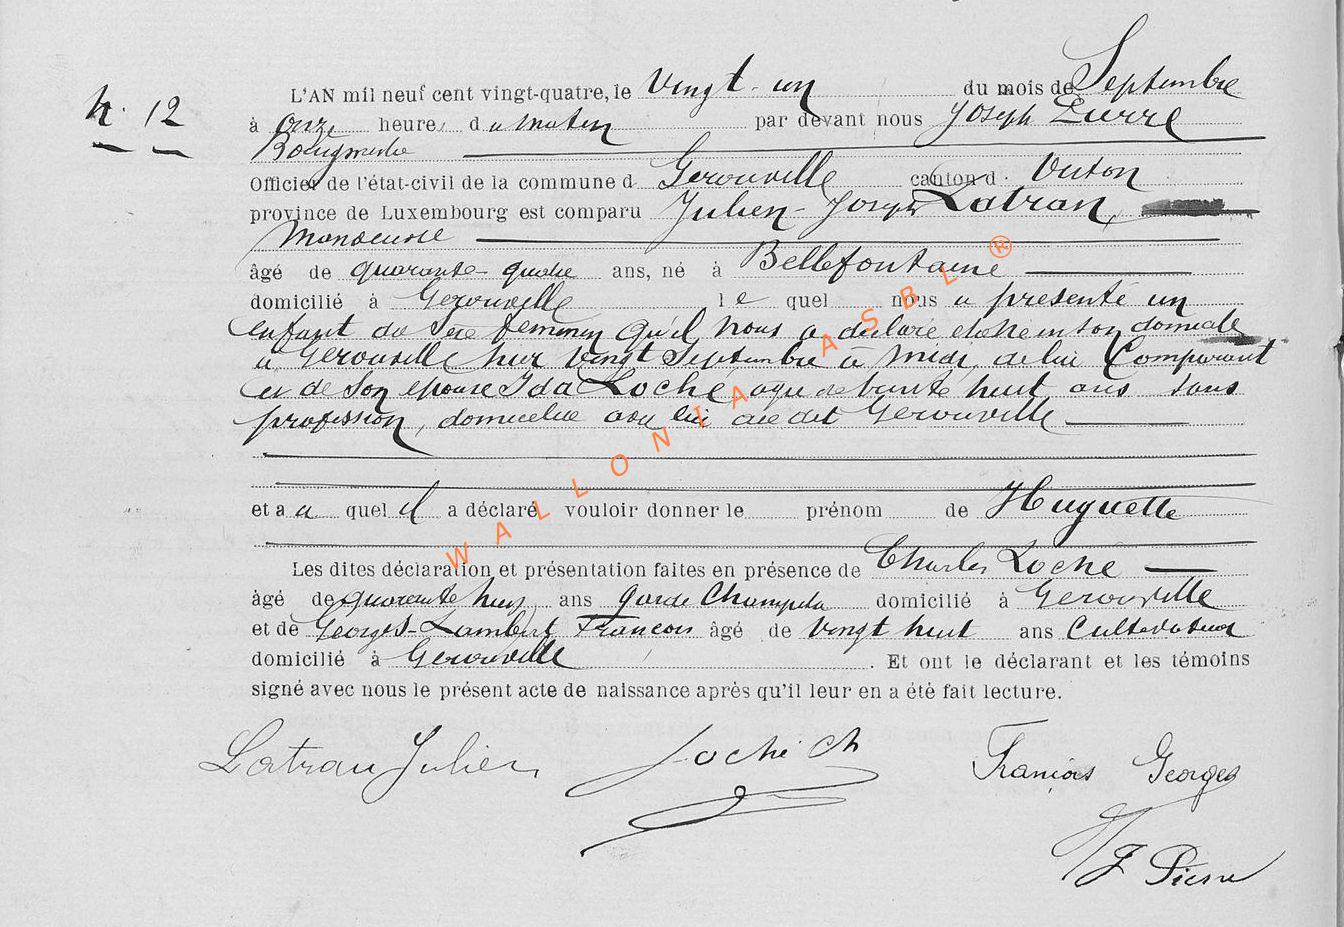 N. 12
L'AN mil neuf cent vingt-quatre, le Vingt-un du mois de Septembre
à onze heures du matin par devant nous Joseph Pierre
Bourgmestre
Officier de l'état-civil de la commune d Gerouville canton d Virton
province de Luxembourg est comparu Julien-Joseph Latran,
âgé de quarante-quatre ans, né à Bellefontaine
domicilié à Gerouville le quel nous a présenté un
enfant du sexe féminin qu'il nous a déclaré être né en son domicile
à Gerouville hier vingt Septembre à midi, de lui Comparant
et de son épouse Ida Loché, agée de trente huit ans sans
profession, domiciliée avec lui au dit Gerouville
et au quel il a déclaré vouloir donner le prénom de Huguette
Les dites déclaration et présentation faites en présence de Charles Loché
âgé de quarante huit ans garde Champêtre domicilié à Gerouville
et de Georges-Lambert François âgé de Vingt huit ans Cultivateur
domicilié à Gerouville. Et ont le déclarant et les témoins
signé avec nous le présent acte de naissance après qu'il leur en a été fait lecture.
Latran Julien Loché Ch François Georges
J Pierre
WALLONIA ASBL ®